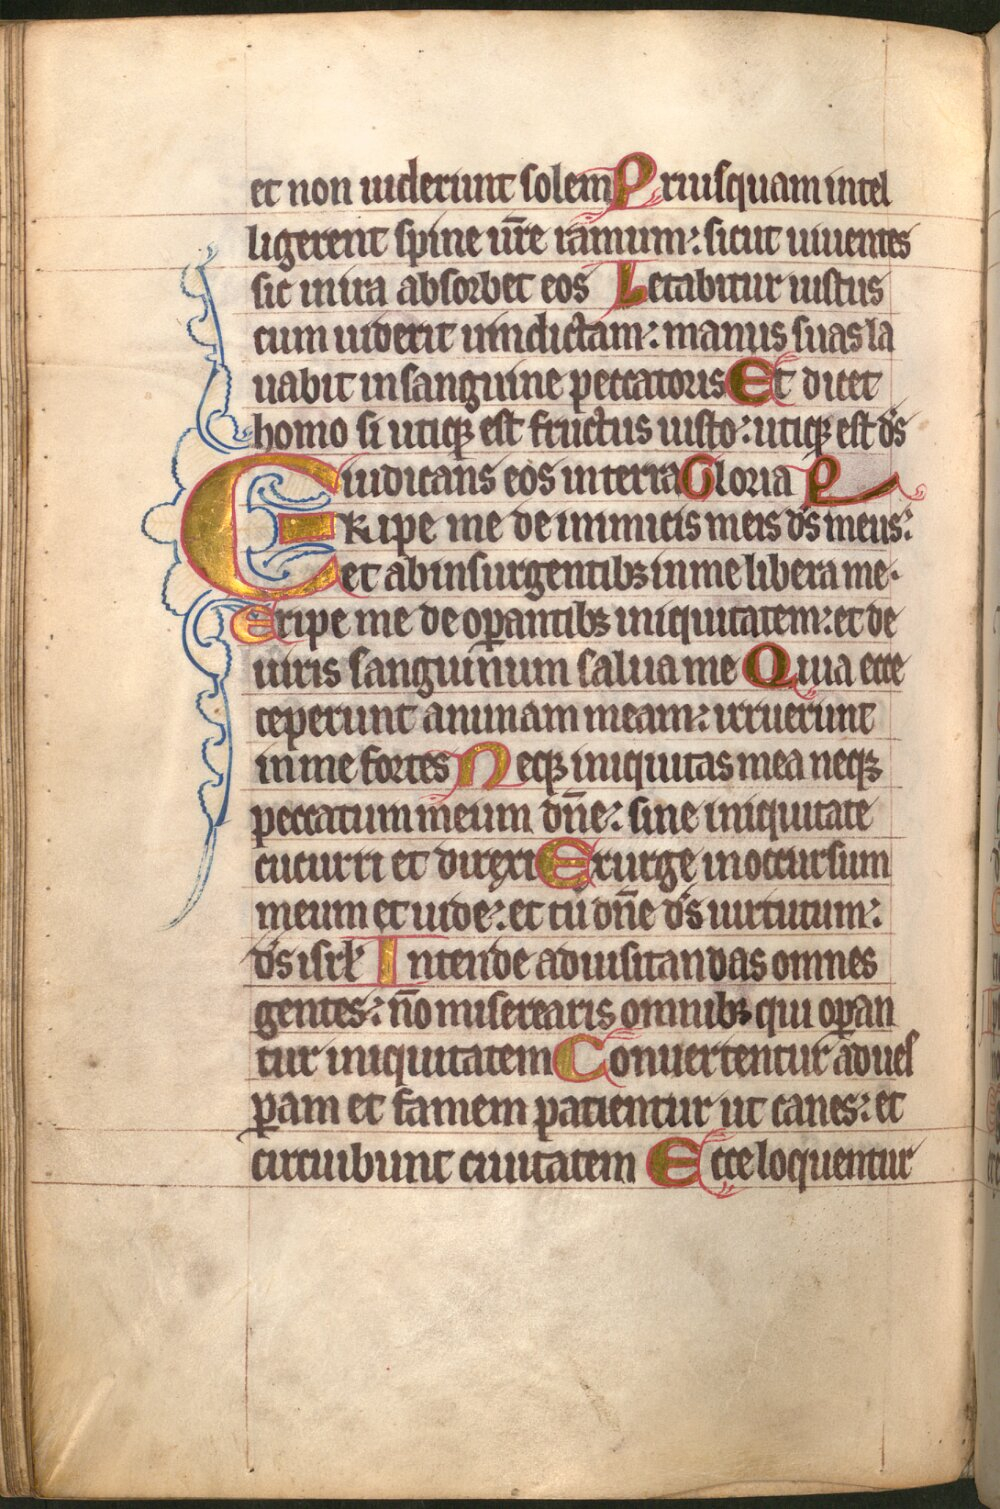 et non uiderunt solem Priusquam intel
ligerent spine ur̄e ramum: sicut uiuentes
sic in ira absorbet eos Letabitur iustus
cum uiderit uindictam: manus suas la
uabit in sanguine peccatoris Et dicet
homo si utiqꝫ est fructus iusto: utiqꝫ est ds̄
iudicans eos in terra Gloria P
ERipe me de inimicis meis ds̄ meus:
et ab insurgentibꝫ in me libera me.
Eripe me de oꝑantibꝫ iniquitatem: et de
uiris sanguinum salua me Quia ecce
ceperunt animam meam: irruerunt
in me fortes Neqꝫ iniquitas mea neqꝫ
peccatum meum dn̄e: sine iniquitate
cucurri et direxi Exurge in occursum
meum et uide: et tu dn̄e ds̄ uirtutum:
ds̄ isrl̄ Intende ad uisitandas omnes
gentes: no̅ miserearis omnibꝫ qui oꝑan
tur iniquitatem Conuertentur ad ues
ꝑam et famem patientur ut canes: et
circuibunt ciuitatem Ecce loquentur